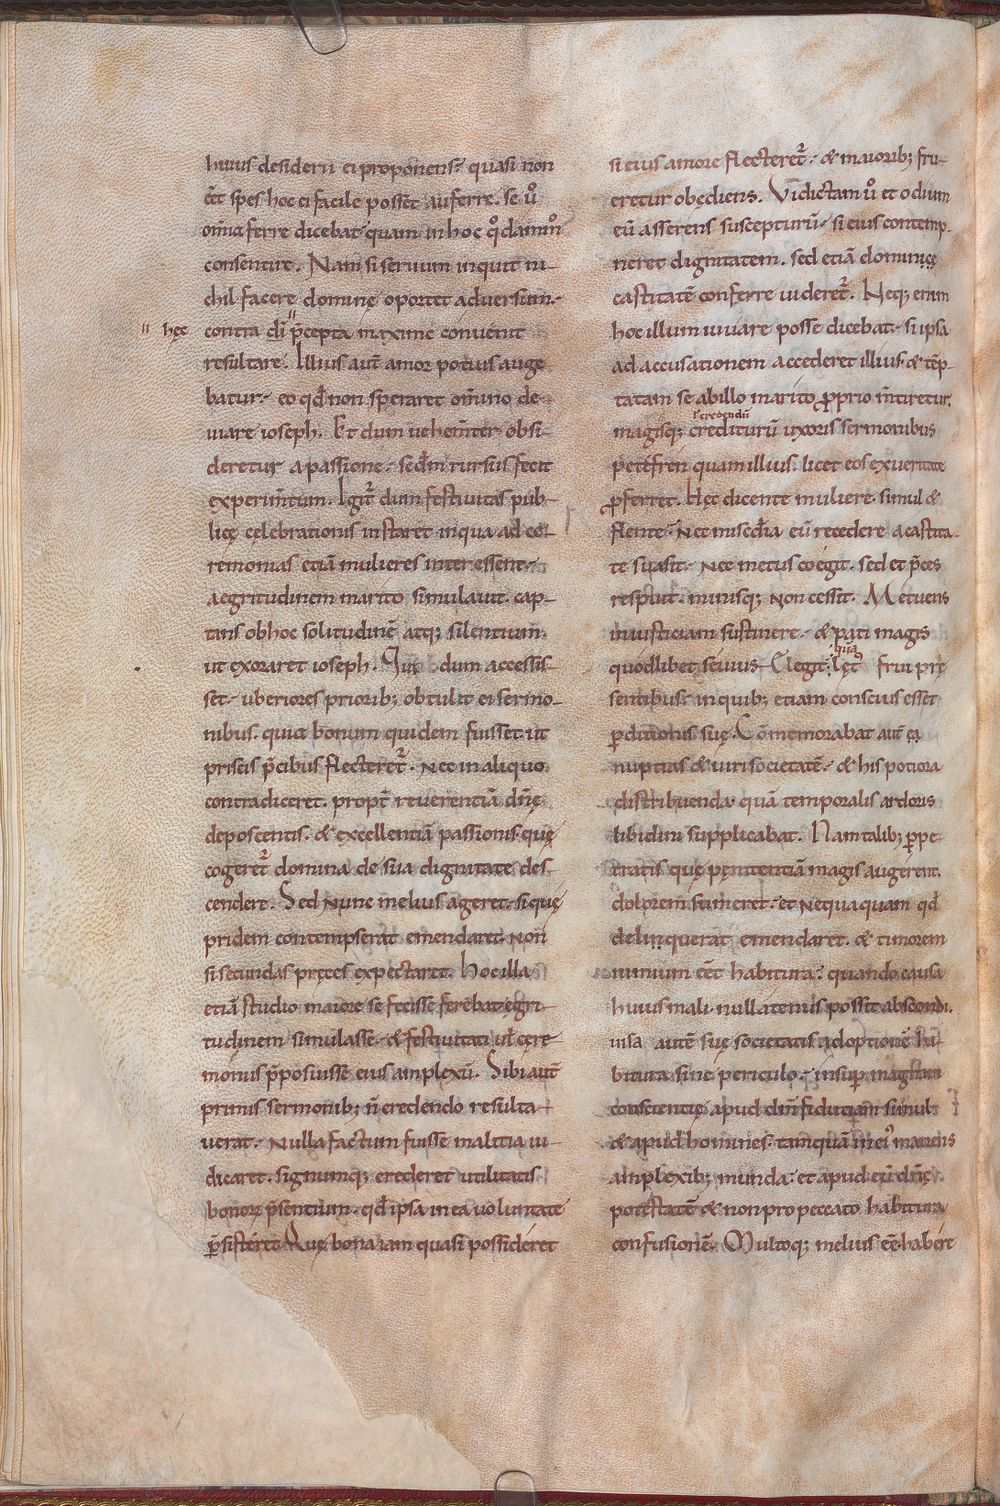 huius desiderii ei proponens. quasi non
eēt spes hoc ei facile possēt auferre. se ū
omīa ferre dicebat quam in hoc q̊ damīno
consentire. Nam si seruum inquit ni-
chil facere dominę oportet aduersum.
hęc
contra dī p̄cepta maxime conuenit
resultare. Illius aut̄ amor potius auge
batur. eo qd̄ non speraret om̄ino de-
uiare ioseph. Et dum uehem̄ter obsi-
deretur a passione. sec̄dm rursus fecit
experim̄tum. Igit̄ dum festiuitas pub-
licę celebrationis instaret in qua ad ce-
remonias etiā mulieres interessent.
aegritudinem marito simulauit. cap-
tans ob hoc solitudinē atq; silentium.
ut exoraret ioseph. Qui dum accessis-
set. uberiores priorib; obtulit ei sermo-
nibus. quia bonum quidem fuisset ut
priscis p̄cibus flecteret̄. Nec in aliquo
contradiceret. propt̄ reuerentiā dn̄ę
deposcentis. & excellentiā passionis. quę
cogeret̄ domina de sua dignitate des-
cendere. Sed nunc melius ageret. si quę
pridem contempserat emendaret. Non
si secundas pręces expectaret. Hoc illa
etiā studio maiore se fecisse ferebat. egri
tudinem simulasse. & festiuitati ul̄ cęre
moniis p̄posuisse eius amplexū. Sibi aut̄
primis sermonib; n̄ credendo resulta
uerat. Nulla factum fuisse malitia iu-
dicaret. signumq; crederet utilitatis
bonorꝝ p̄sentium. qd̄ ipsa in ea uoluntate
p̄sisteret. Quę bona iam quasi possideret
si eius amore flecteret̄. & maiorib; fru-
eretur obędiens. Vindictam ū et odium
eū asserens suscepturū. si eius contemp-
neret dignitatem. sed etiā dominicę
castitatē conferre uideret̄. Neq; enim
hoc illum iuuare posse dicebat. si ipsa
ad accusationem accederet illius & tēp-
tatam se ab illo marito ꝓprio m̄tiretur.
ł credendū
magisq; crediturū uxoris sermonibus
petefren quam illius. licet eos ex ueritate
ꝓferret. Hęc dicente muliere. simul &
flente. Nec misc̄dia eū recedere a castita-
te suasit. Nec metus coegit. sed et p̄ces
respuit. minisq; non cessit. Metuens
iniusticiam sustinere. & pati magis
quā
quodlibet seuius elegit. lęt frui prę
sentibus. in quib; etiam conscius esset
ꝑditionis suę. Cōmemorabat aut̄ eā
nuptias & uiri societatē. & his potiora
distribuenda quā temporalis ardoris
libidini supplicabat. Nam talib; ꝑpe
tratis quę pęnitentiā magis augerent.
dolorem sumeret. et nequaquam qd̄
delinquerat emendaret. & timorem
nimium eēt habitura. quando causa
huius mali nullatenus possit abscondi.
uisa autē suę societatis adoptionē ha
bitura sine periculo. insuꝑ magnam
consc̄ientię apud dm̄ fiduciam simul
& apud homines. tanquā in ei' manens
amplexib; munda. et apud eū dn̄ę.
potestatē & non pro peccato habitura
confusionē. Multoq; melius eē habere